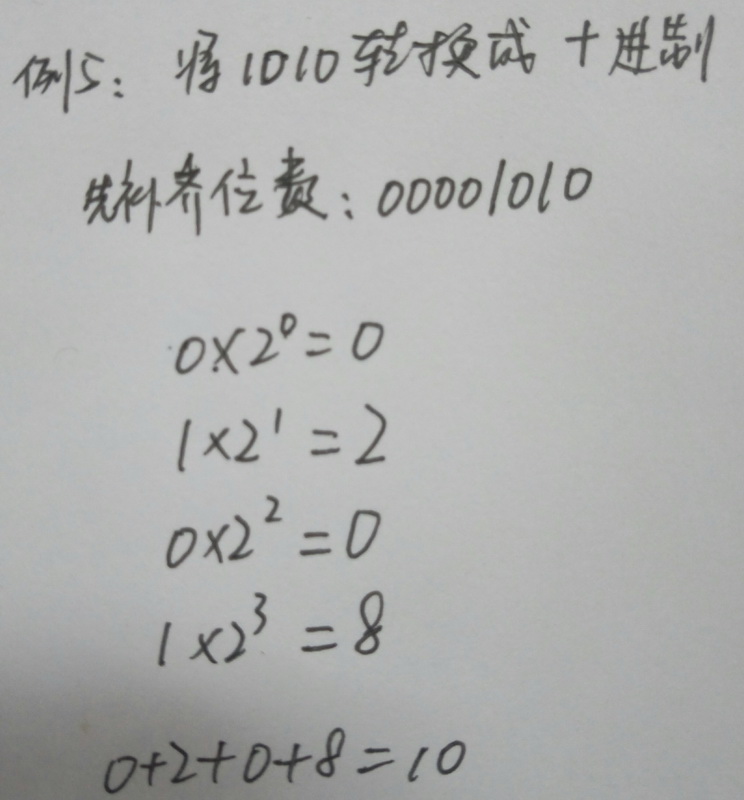 例5：将1010转换成十进制
先补齐位数：00001010
0×2⁰=0
1×2¹=2
0×2²=0
1×2³=8
0+2+0+8=10